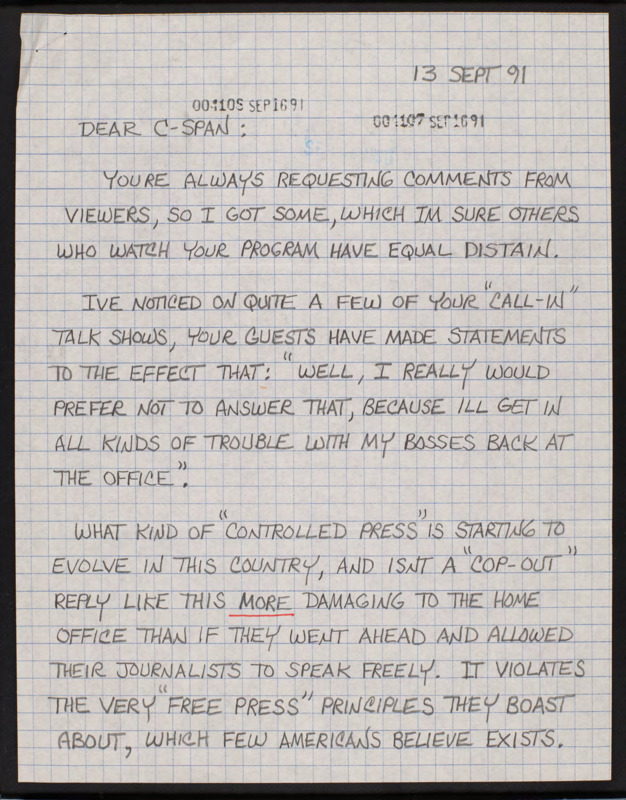 13 SEPT 91
004105 SEP1691
004107 SEP1691
DEAR C-SPAN:
YOURE ALWAYS REQUESTING COMMENTS FROM
VIEWERS, SO I GOT SOME, WHICH IM SURE OTHERS
WHO WATCH YOUR PROGRAM HAVE EQUAL DISTAIN.
IVE NOTICED ON QUITE A FEW OF YOUR "CALL-IN"
TALK SHOWS, YOUR GUESTS HAVE MADE STATEMENTS
TO THE EFFECT THAT: "WELL, I REALLY WOULD
PREFER NOT TO ANSWER THAT, BECAUSE ILL GET IN
ALL KINDS OF TROUBLE WITH MY BOSSES BACK AT
THE OFFICE".
WHAT KIND OF "CONTROLLED PRESS" IS STARTING TO
EVOLVE IN THIS COUNTRY, AND ISNT A "COP-OUT"
REPLY LIKE THIS MORE DAMAGING TO THE HOME
OFFICE THAN IF THEY WENT AHEAD AND ALLOWED
THEIR JOURNALISTS TO SPEAK FREELY. IT VIOLATES
THE VERY "FREE PRESS" PRINCIPLES THEY BOAST
ABOUT, WHICH FEW AMERICANS BELIEVE EXISTS.